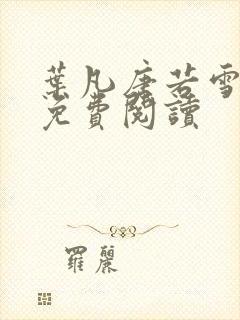 葉凡唐若雪
免費閱讀
羅麗